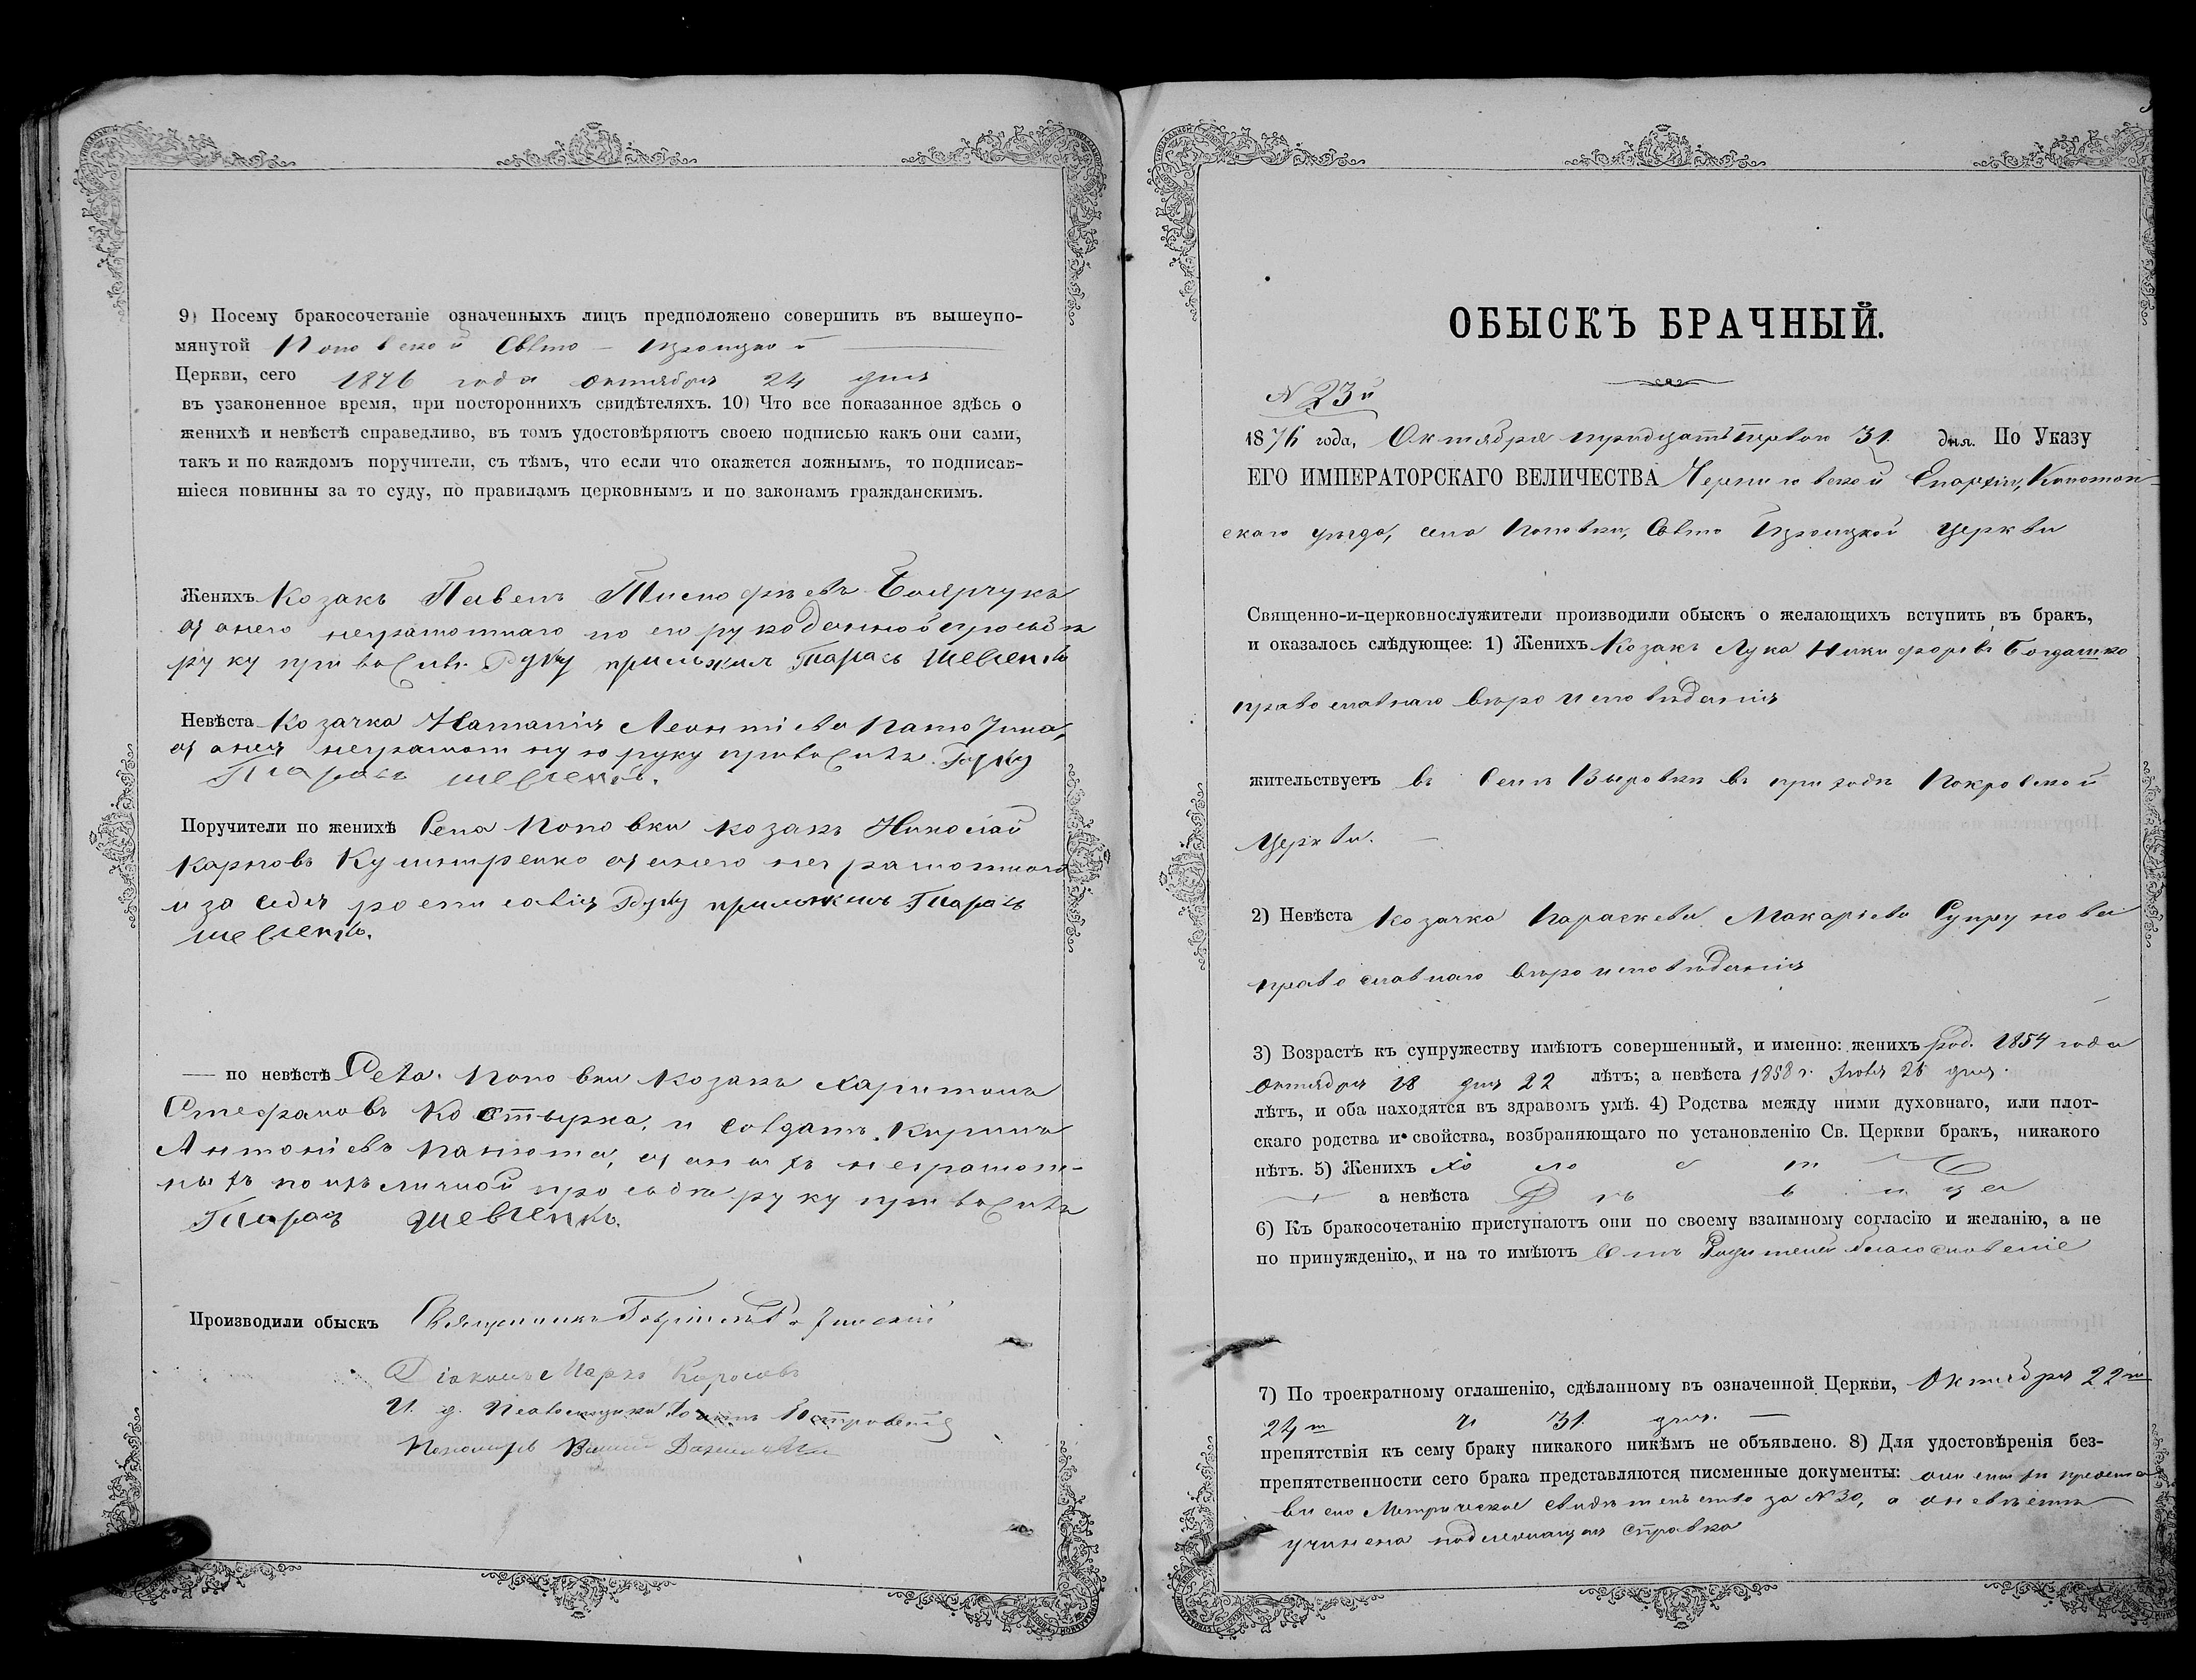 9) Посему бракосочетаніе означенныхъ лицъ предположено совершить въ вышеупо-
мянутой Поповской Свѣто - Троицкой
Церкви, сего 1876 года октября 24 дня
въ узаконенное время, при постороннихъ свидѣтеляхъ. 10) Что все показанное здѣсь о
женихѣ и невѣстѣ справедливо, въ томъ удостовѣряютъ своею подписью какъ они сами,
такъ и по каждомъ поручители, съ тѣмъ, что если что окажется ложнымъ, то подписав-
шіеся повинны за то суду, по правиламъ церковнымъ и по законамъ гражданскимъ.
Женихъ Козакъ Павелъ Боярчукъ
а онего неграмотнаго по его рукоданной просьбѣ
руку Руку приложилъ Тарасъ Шевченко
Невѣста Козачка Наталія Леонтіева
а онея неграмотную руку Руку
Тарасъ Шевченко.
Поручители по женихѣ Села Поповки козакъ Николай
Карповъ а онего неграмотнаго
и за себя Руку приложилъ Тарасъ
Шевченко.
— по невѣстѣ Села Поповки Козакъ Харитонъ
Стефановъ Костырка, и солдатъ Кирилъ
Антоніевъ а онихъ неграмот-
ныхъ по ихъ личной просьбѣ руку
Тарас Шевченко.
Производили обыскъ Священникъ Гавріилъ
Діаконъ Марко
И. д. Псаломщика
Пономарь
ОБЫСКЪ БРАЧНЫЙ.
N 23й
1876 года, Октября тридцать перваго 31 дня. По Указу
ЕГО ИМПЕРАТОРСКАГО ВЕЛИЧЕСТВА Черниговской Епархіи, Конотоп-
скаго уѣзда, села Поповки, Свѣто Троицкой Церкви
Священно-и-церковнослужители производили обыскъ о желающихъ вступить въ бракъ,
и оказалось слѣдующее: 1) Женихъ Козакъ Лука Никифоровъ Богдашко
православнаго вѣроисповѣданія
жительствуетъ въ Селѣ Выровкѣ въ приходѣ Покровской
Церкви. —
2) Невѣста Козачка Параскева Макаріева Супрунова
православнаго вѣроисповѣданія
3) Возрастъ къ супружеству имѣютъ совершенный, и именно: женихъ род. 1854 года
Октября 18 дня 22 лѣтъ; а невѣста 1858 г. 28 дня.
лѣтъ, и оба находятся въ здравомъ умѣ. 4) Родства между ними духовнаго, или плот-
скаго родства и свойства, возбраняющаго по установленію Св. Церкви бракъ, никакого
нѣтъ. 5) Женихъ Хо ло с т ъ
а невѣста Д ѣ в и ца
6) Къ бракосочетанію приступаютъ они по своему взаимному согласію и желанію, а не
по принужденію, и на то имѣютъ отъ Родителей благословеніе
7) По троекратному оглашенію, сдѣланному въ означенной Церкви, Октября 22го
24го и 31 дня. —
препятствія къ сему браку никакого никѣмъ не объявлено. 8) Для удостовѣренія без-
препятственности сего брака представляются писменные документы: предста
влено Метрическое свидѣтельство за N 30, а оневѣстѣ
учинена надлежащая справка